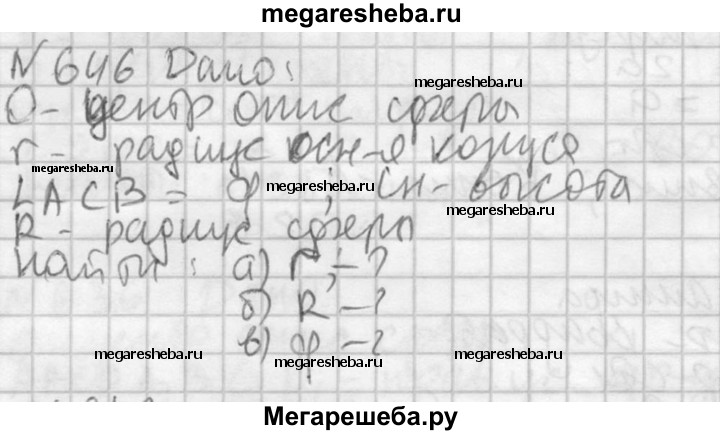 megaresheba.ru
N 646 Дано:
megaresheba.ru
О- центр опис сферы
megaresheba.ru
r - радиус осн-я конуса
megaresheba.ru
∠ACB = φ ; CH- высота
megaresheba.ru
megaresheba.ru
R - радиус сферы
Найти: а) r -?
б) R -?
в) φ -?
megaresheba.ru
megaresheba.ru
megaresheba.ru
Мегарешеба.ру